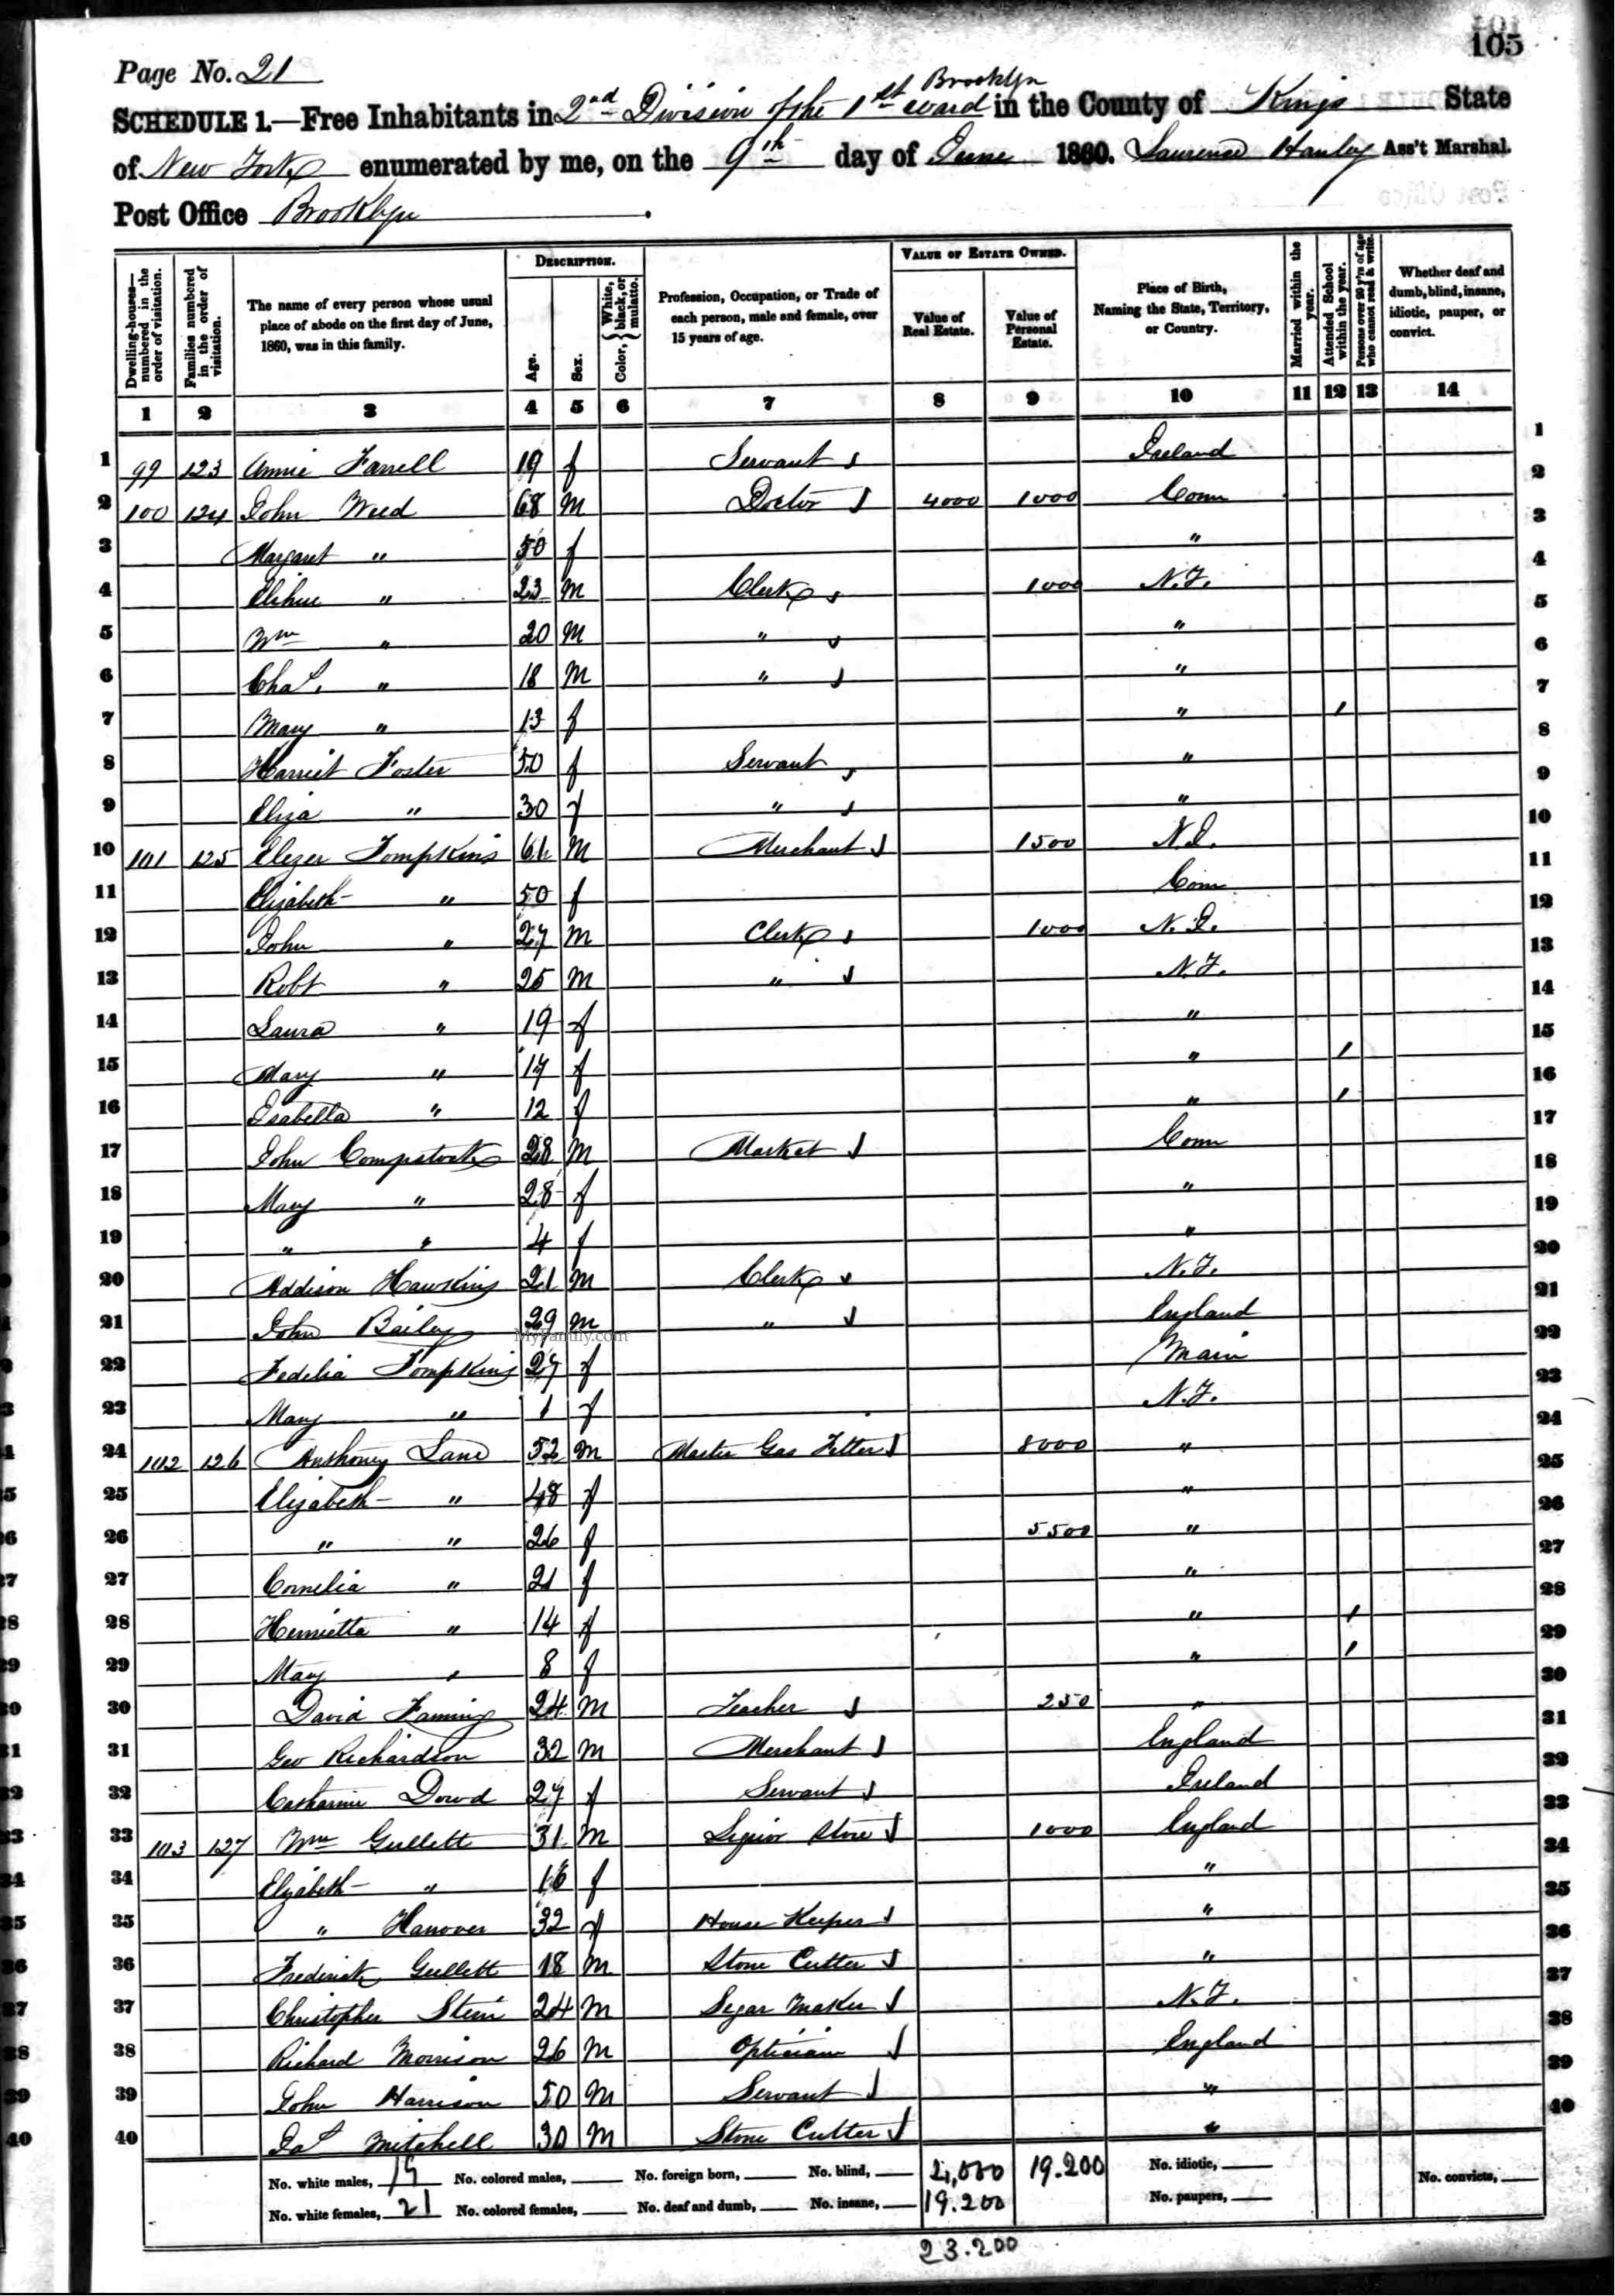 105
Page No. 21
Brooklyn
SCHEDULE 1.—Free Inhabitants in 2nd Division of the 1st ward in the County of Kings State
of New York enumerated by me, on the 9th day of June 1860. Laurence Hanley Ass't Marshal.
Post Office Brooklyn.
Dwelling-houses—numbered in the order of visitation.
Families numbered in the order of visitation.
The name of every person whose usual place of abode on the first day of June, 1860, was in this family.
DESCRIPTION.
Age.
Sex.
Color, { White, black, or mulatto.
Profession, Occupation, or Trade of each person, male and female, over 15 years of age.
VALUE OF ESTATE OWNED.
Value of Real Estate.
Value of Personal Estate.
Place of Birth, Naming the State, Territory, or Country.
Married within the year.
Attended School within the year.
Persons over 20 y'rs of age who cannot read & write.
Whether deaf and dumb, blind, insane, idiotic, pauper, or convict.
1 2 3 4 5 6 7 8 9 10 11 12 13 14
1 99 123 Annie Farrell 19 f Servant Ireland 1
2 100 124 John Weed 68 M Doctor 4000 1000 Conn 2
3 Margaret " 50 f " 3
4 Elihue " 23 M Clerk 1000 N.Y. 4
5 Wm " 20 M " " 5
6 Chas. " 18 M " " 6
7 Mary " 13 f " / 7
8 Harriet Foster 50 f Servant " 8
9 Eliza " 30 f " " 9
10 101 125 Elezer Tompkins 61 M Merchant 1500 N.J. 10
11 Elizabeth " 50 f Conn 11
12 John " 27 M Clerk 1000 N.J. 12
13 Robt " 25 M " N.Y. 13
14 Laura " 19 f " 14
15 Mary " 17 f " / 15
16 Isabella " 12 f " / 16
17 John Compstock 28 M Market Conn 17
18 Mary " 28 f " 18
19 " " 4 f " 19
20 Addison Hawkins 21 M Clerk N.Y. 20
21 John Bailey 29 M " England 21
MyFamily.com
22 Fedelia Tompkins 27 f Main 22
23 Mary " 1 f N.Y. 23
24 102 126 Anthony Lane 52 M Master Gas Fitter 8000 " 24
25 Elizabeth " 48 f " 25
26 " " 26 f 5500 " 26
27 Cornelia " 21 f " 27
28 Henrietta " 14 f " / 28
29 Mary " 8 f " / 29
30 David Faning 24 M Teacher 250 " 30
31 Geo Richardson 32 M Merchant England 31
32 Catharine Dowd 27 f Servant Ireland 32
33 103 127 Wm Gullett 31 M Liquor Store 1000 England 33
34 Elizabeth " 16 f " 34
35 " Hanover 32 f House Keeper " 35
36 Frederick Gullett 18 M Stone Cutter " 36
37 Christopher Stein 24 M Segar Maker N.Y. 37
38 Richard Morrison 26 M Optician England 38
39 John Harrison 50 M Servant " 39
40 Jas Mitchell 30 M Stone Cutter " 40
No. white males, 19 No. colored males, No. foreign born, No. blind, 4,000 19.200 No. idiotic, No. convicts,
No. white females, 21 No. colored females, No. deaf and dumb, No. insane, 19.200 No. paupers,
23.200